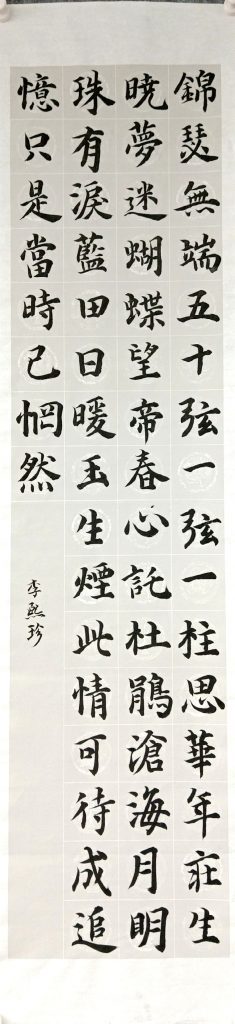 錦瑟無端五十弦一弦一柱思華年莊生
曉夢迷蝴蝶望帝春心託杜鵑滄海月明
珠有淚藍田日暖玉生煙此情可待成追
憶只是當時已惘然
李熙珍